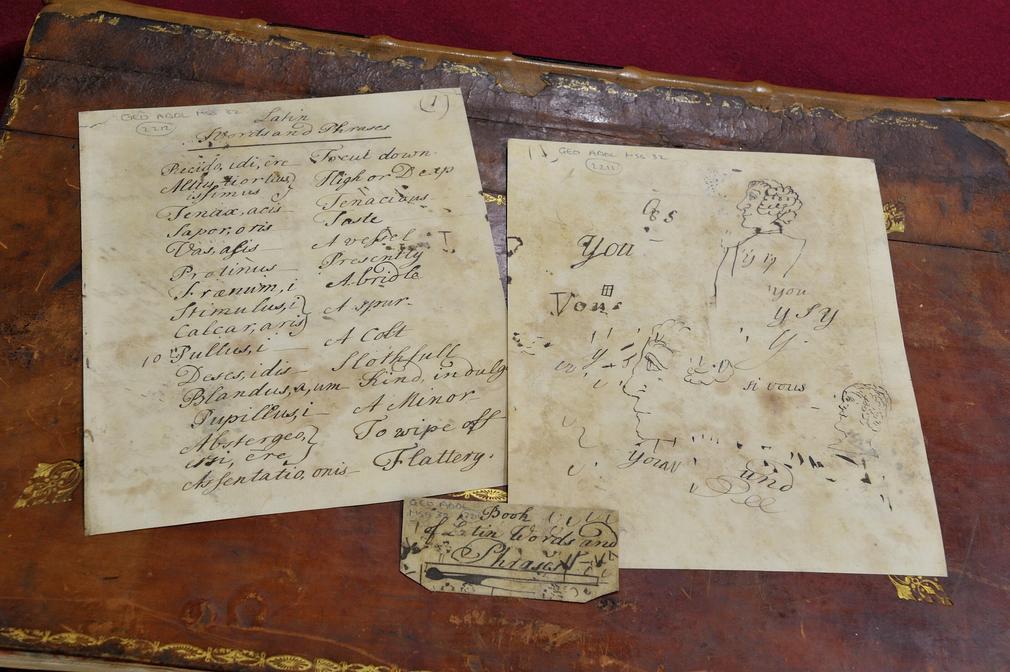 GEO ADDL MSS 32
2212
(1)
Latin
Words and Phrases
Recido, idi, ere To cut down.
Altus, tior tius, issimus } High or Deep
Tenax, acis Tenacious
Sapor, oris Taste
Vas, asis A vessel
Protinus Presently
Frænum, i A bridle
Stimulus, i }
Calcar, aris } A spur
10 Pullus, i A Colt
Deses, idis Slothfull
Blandus, a, um Kind, indulg
Pupillus, i A Minor
Abstergeo, }
ssi, ēre } To wipe off
Assentatio, onis Flattery.
GEO ADDL MSS 32
2211
You
Vous
you
y
si vous
und
GEO ADDL
MSS 32
Book
of Latin Words and
Phrases